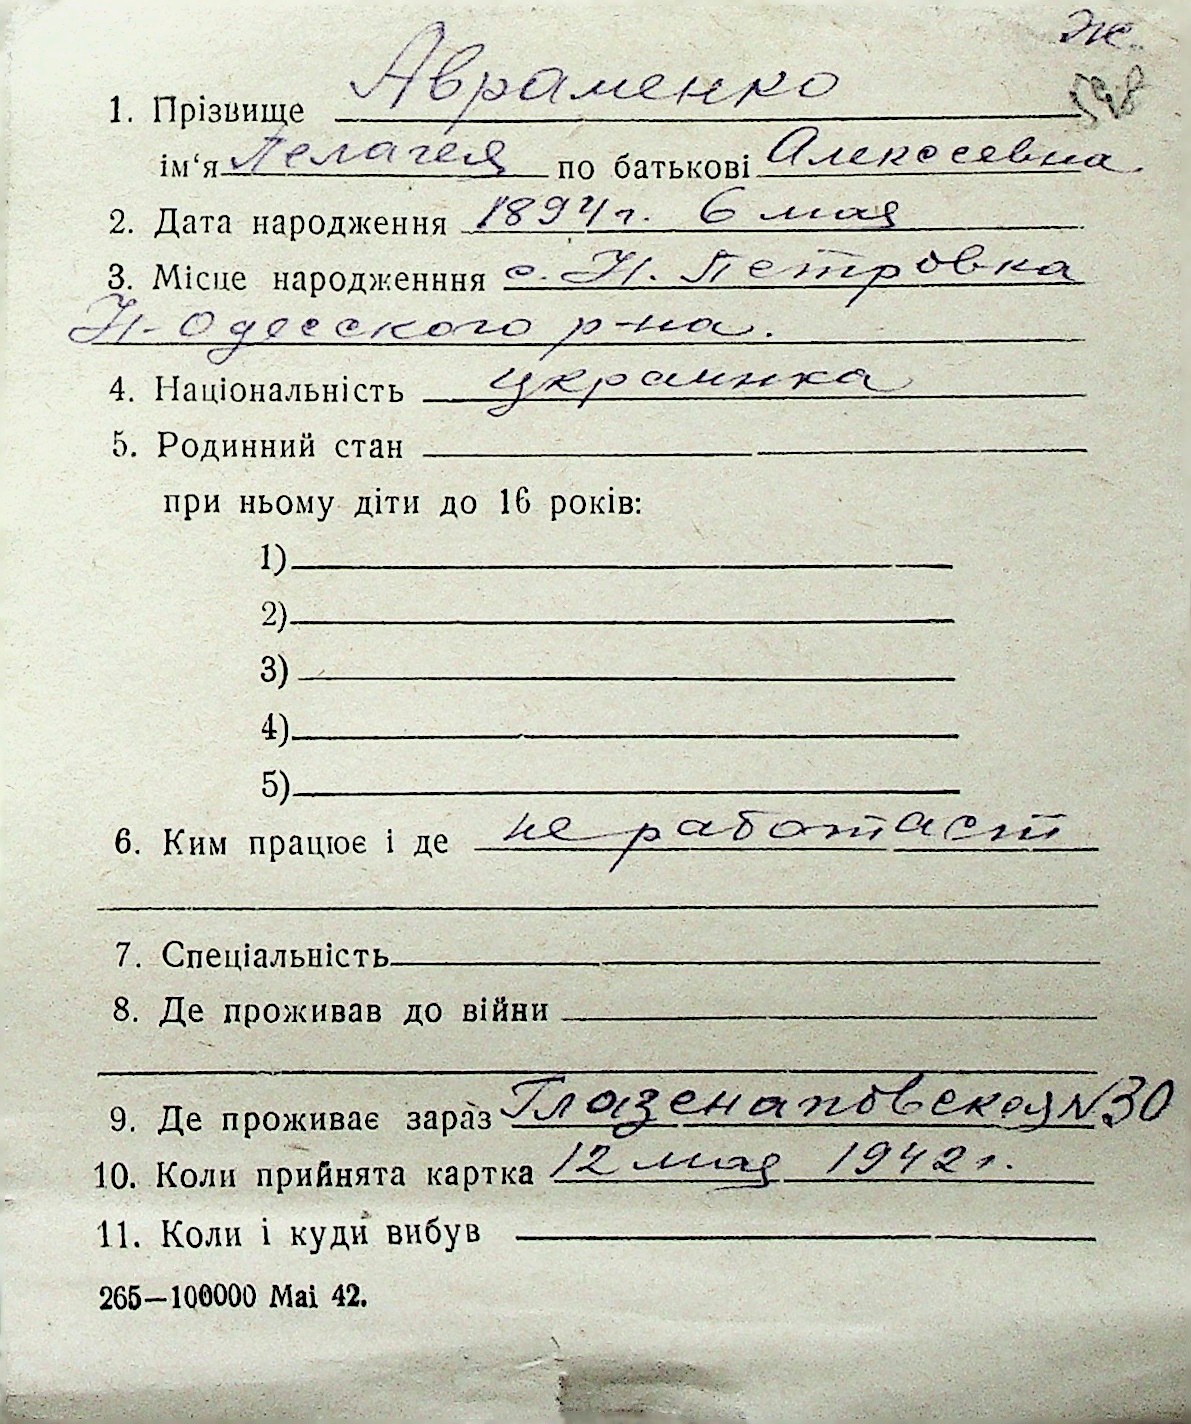 Ж.
598
1. Прізвище Авраменко
ім‘я Пелагея по батькові Алексеевна
2. Дата народження 1894 г. 6 мая
3. Місце народженння с. Н. Петровка
Н-Одесского р-на.
4. Національність украинка
5. Родинний стан
при ньому діти до 16 років:
1)
2)
3)
4)
5)
6. Ким працює і де не работает
7. Спеціальність
8. Де проживав до війни
9. Де проживає зараз Глазенаповская №30
10. Коли прийнята картка 12 мая 1942 г.
11. Коли і куди вибув
265—100000 Mai 42.